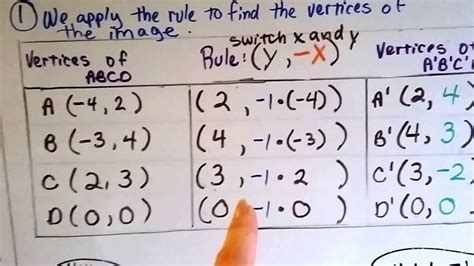 ① We apply the rule to find the vertices of
the image.
Vertices of
ABCD
switch x and y
Rule: (Y, -X)
Vertices o
A'B'C'
A (-4, 2)
(2, -1•(-4))
A' (2, 4
B (-3, 4)
(4, -1•(-3))
B' (4, 3)
C (2, 3)
(3, -1•2)
C' (3, -2
D (0, 0)
(0, -1•0)
D' (0, 0